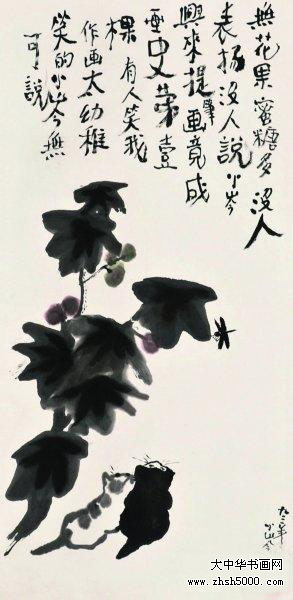 無花果蜜糖多沒人
表扬沒人說小岑
興來提筆画竟成
画史第壹
棵有人笑我
作画太幼稚
笑的小岑無
可說
九二年
小岑
大中华书画网
www.zhsh5000.com